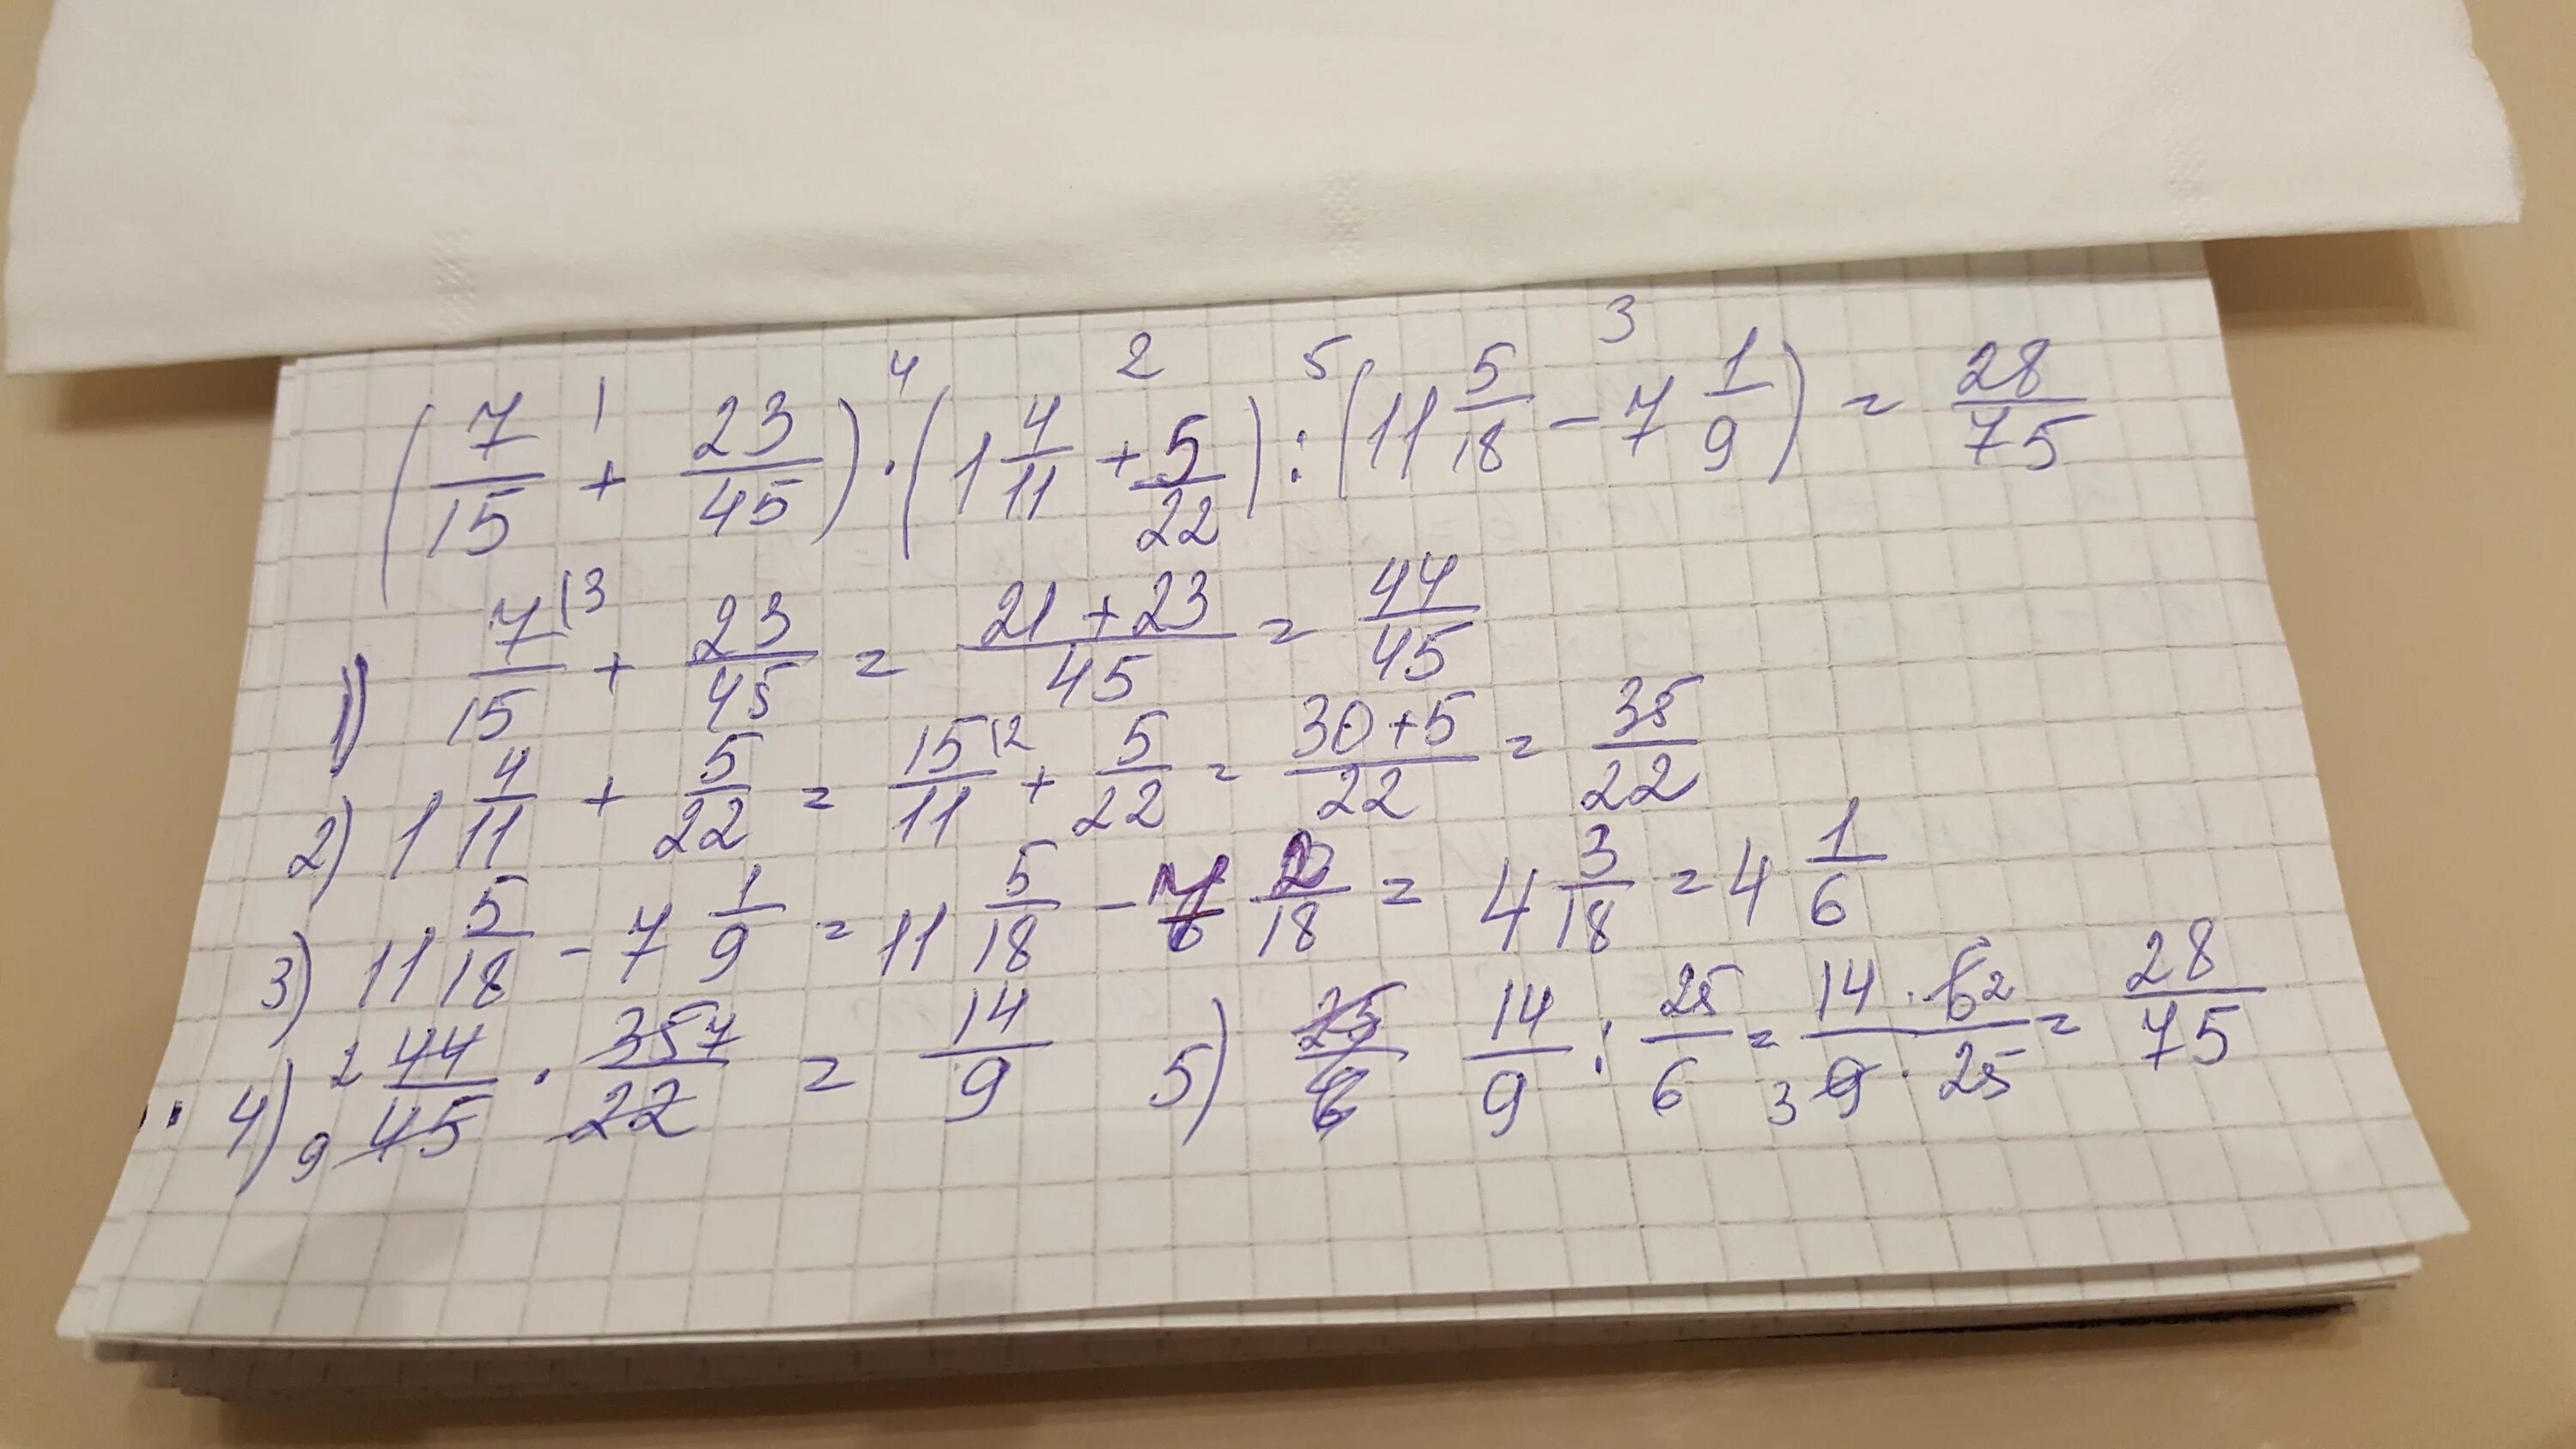 (7/15 + 23/45) · (1 4/11 + 5/22) : (11 5/18 - 7 1/9) = 28/75
1) 7/15 + 23/45 = 21+23/45 = 44/45
2) 1 4/11 + 5/22 = 15/11 + 5/22 = 30+5/22 = 35/22
3) 11 5/18 - 7 1/9 = 11 5/18 - 7 2/18 = 4 3/18 = 4 1/6
4) 44/45 · 35/22 = 14/9 5) 14/9 : 25/6 = 14·6/9·25 = 28/75